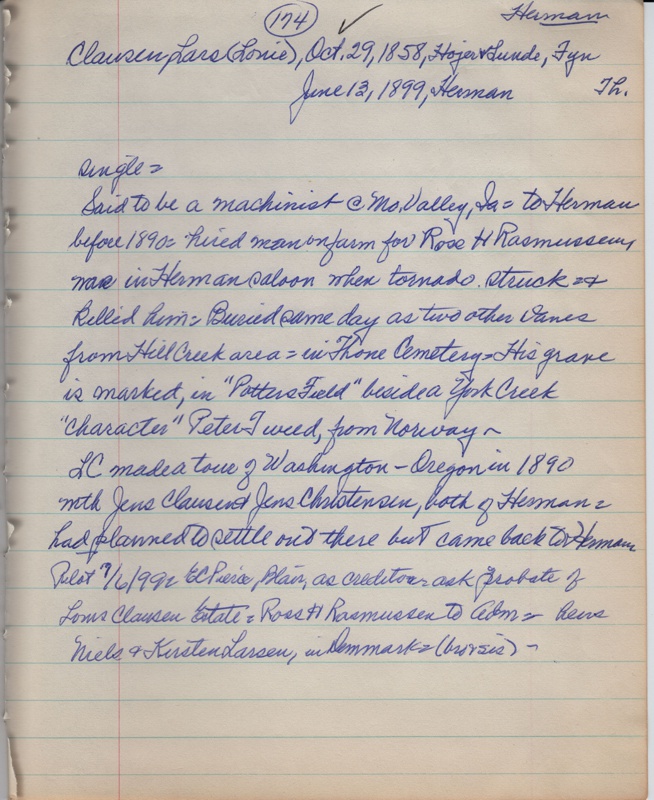 174
Herman
Clausen, Lars (Lonie), Oct. 29, 1858, Hojer & Lunde, Fyn
June 13, 1899, Herman Th.
single =
Said to be a machinist @ Mo. Valley, Ia = to Herman
before 1890 = hired man on farm for Ross H Rasmussen,
was in Herman saloon when tornado struck = &
killed him = Buried same day as two other Danes
from Hill Creek area = in Thone Cemetery = His grave
is marked, in "Potters Field" beside a York Creek
"Character" Peter Tweed, from Norway ~
LC made a tour of Washington - Oregon in 1890
with Jens Clausen & Jens Christensen, both of Herman =
had planned to settle out there but came back to Herman
Pilot 9/6/99 = EC Pierce, Blair, as creditor ask probate of
Louis Clausen Estate = Ross H Rasmussen to Adm =
Niels & Kirsten Larsen, in Denmark = (bro & sis) ~